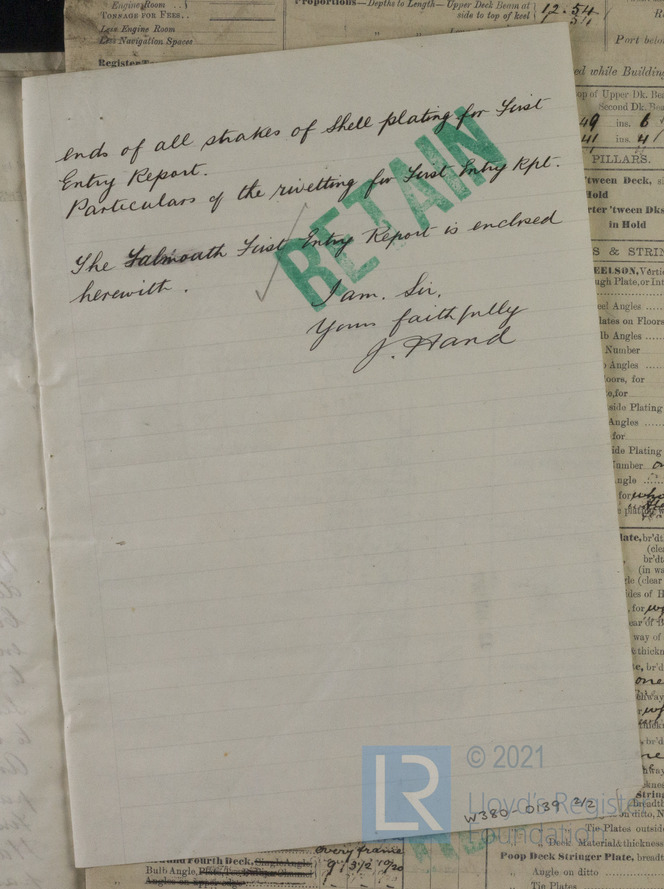 Engine Room
TONNAGE FOR FEES..
Less Engine Room
Less Navigation Spaces
Proportions—Depths to Length—Upper Deck Beam at
side to top of keel
12.54
Port
ed while Building
op of Upper Dk. Bea
Second Dk. Bea
49 ins. 6
41 ins. 4
PILLARS.
'tween Deck, si
Hold
rter 'tween Dks
in Hold
S & STRIN
EELSON, Verti
ugh Plate, or Int
eel Angles
lates on Floors
lb Angles
Number
Angles
oore, for
side Plating
Angles
for
ide Plating
Number
ngle
for
ends of all strakes of Shell plating for First
Entry Report.
Particulars of the rivetting for First Entry Rpt.
The Falmouth First Entry Report is enclosed
herewith.
I am. Sir,
Yours faithfully
J. Hand
RETAIN
late, br'dt
(cle
br'dt
(in wa
gle (clear
ides of H
way of
& thickn
one
© 2021
LR
Lloyd's Registe
Foundation
W380-0139 2/2
on ditto, N
Tie Plates outside
Deck Material & thickness
Poop Deck Stringer Plate, breadth
Angle on ditto
Tie Plates
every frame
Fourth Deck, Single Angle
Bulb Angle,
9 3½ 10/20